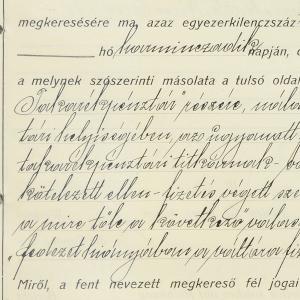 megkeresésére ma, azaz egyezerkilenczszáz-
hó harminczadik napján, c
a melynek szószerinti másolata a tulsó oldal
Takarékpénztár" részére,
tári helyiségében, az ugyanott
takarékpénztári titkárnak
kötelezett ellen fizetés végett
a mire tőle a következő válas
„fedezet hiányában a váltóra fiz
Miről, a fent nevezett megkereső fél jogai